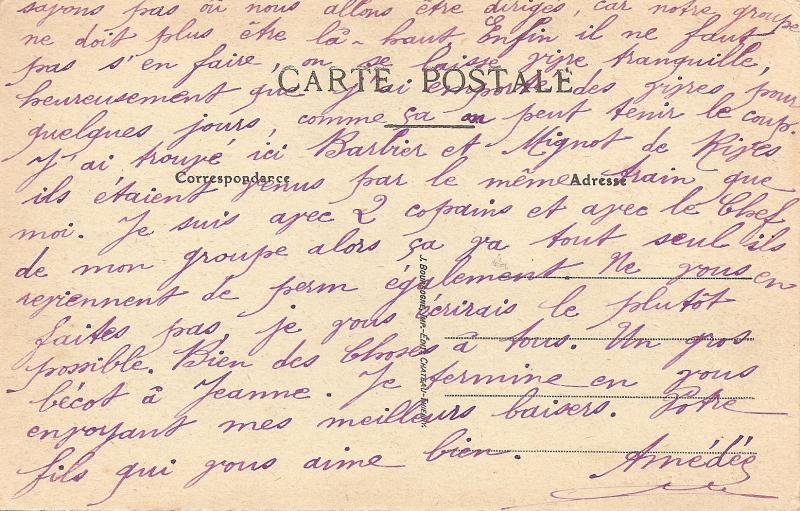 sayons pas où nous allons être dirigés, car notre groupe
ne doit plus être là-haut. Enfin il ne faut
pas s'en faire, on se laisse vivre tranquille,
CARTE POSTALE
heureusement que j'ai emporté des vivres pour
quelques jours, comme ça on peut tenir le coup.
J'ai trouvé ici Barbier et Mignot de Rives
Correspondance
Adresse
ils étaient venus par le même train que
moi. Je suis avec 2 copains et avec le Chef
de mon groupe alors ça va tout seul ils
reviennent de perm également. Ne vous en
faites pas, je vous écrirais le plutôt
possible. Bien des Choses à tous. Un gros
bécot à Jeanne. Je termine en vous
envoyant mes meilleurs baisers. Votre
fils qui vous aime bien. Amédée
J. BOURGOGNE, IMP.-ÉDIT. CHATEAU-THIERRY